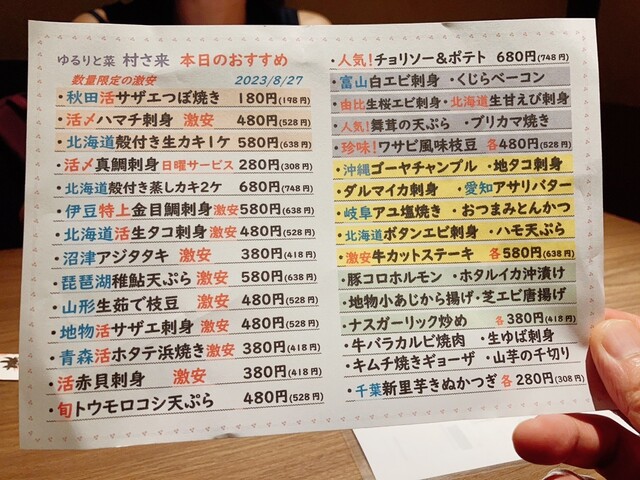 ゆるりと菜 村さ来 本日のおすすめ
数量限定の激安 2023/8/27
・秋田活サザエつぼ焼き 180円(198円)
・活〆ハマチ刺身 激安 480円(528円)
・北海道殻付き生カキ1ケ 580円(638円)
・活〆真鯛刺身日曜サービス 280円(308円)
・北海道殻付き蒸しカキ2ケ 680円(748円)
・伊豆特上金目鯛刺身激安580円(638円)
・北海道活生タコ刺身激安 480円(528円)
・沼津アジタタキ 激安 380円(418円)
・琵琶湖稚鮎天ぷら 激安 580円(638円)
・山形生茹で枝豆 激安 480円(528円)
・地物活サザエ刺身 激安 480円(528円)
・青森活ホタテ浜焼き激安 380円(418円)
・活赤貝刺身 激安 380円(418円)
・旬トウモロコシ天ぷら 480円(528円)
・人気!チョリソー&ポテト 680円(748円)
・富山白エビ刺身 ・くじらベーコン
・由比生桜エビ刺身・北海道生甘えび刺身
・人気!舞茸の天ぷら ・ブリカマ焼き
・珍味!ワサビ風味枝豆 各480円(528円)
・沖縄ゴーヤチャンプル ・地タコ刺身
・ダルマイカ刺身 ・愛知アサリバター
・岐阜アユ塩焼き ・おつまみとんかつ
・北海道ボタンエビ刺身 ・ハモ天ぷら
・激安牛カットステーキ 各580円(638円)
・豚コロホルモン ・ホタルイカ沖漬け
・地物小あじから揚げ・芝エビ唐揚げ
・ナスガーリック炒め 各380円(418円)
・牛バラカルビ焼肉 ・生ゆば刺身
・キムチ焼きギョーザ ・山芋の千切り
・千葉新里芋きぬかつぎ 各280円(308円)